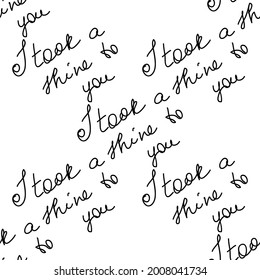 to
I took a
shine to
you
I took a
shine to
you
I took a
shine to
you
I took a
shine to
you
I took a
shine to
you
to
I took
shutterstock.com · 2008041734